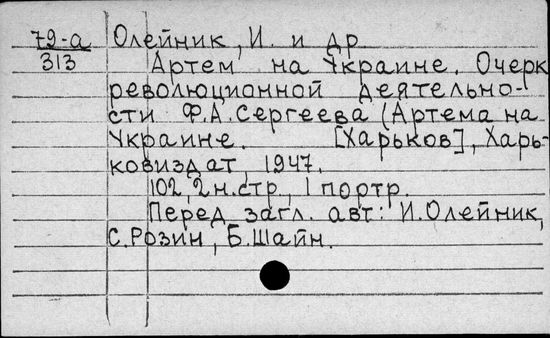 79-а Олейник, И. и др
313
Артем на Украине. Очерк
революционной деятельно-
сти Ф.А.Сергеева (Артема на
Украине. [Харьков], Харь-
ковиздат, 1947.
102, 2н.стр., 1 портр.
Перед загл. авт: И.Олейник,
С.Розин, Б.Шайн.